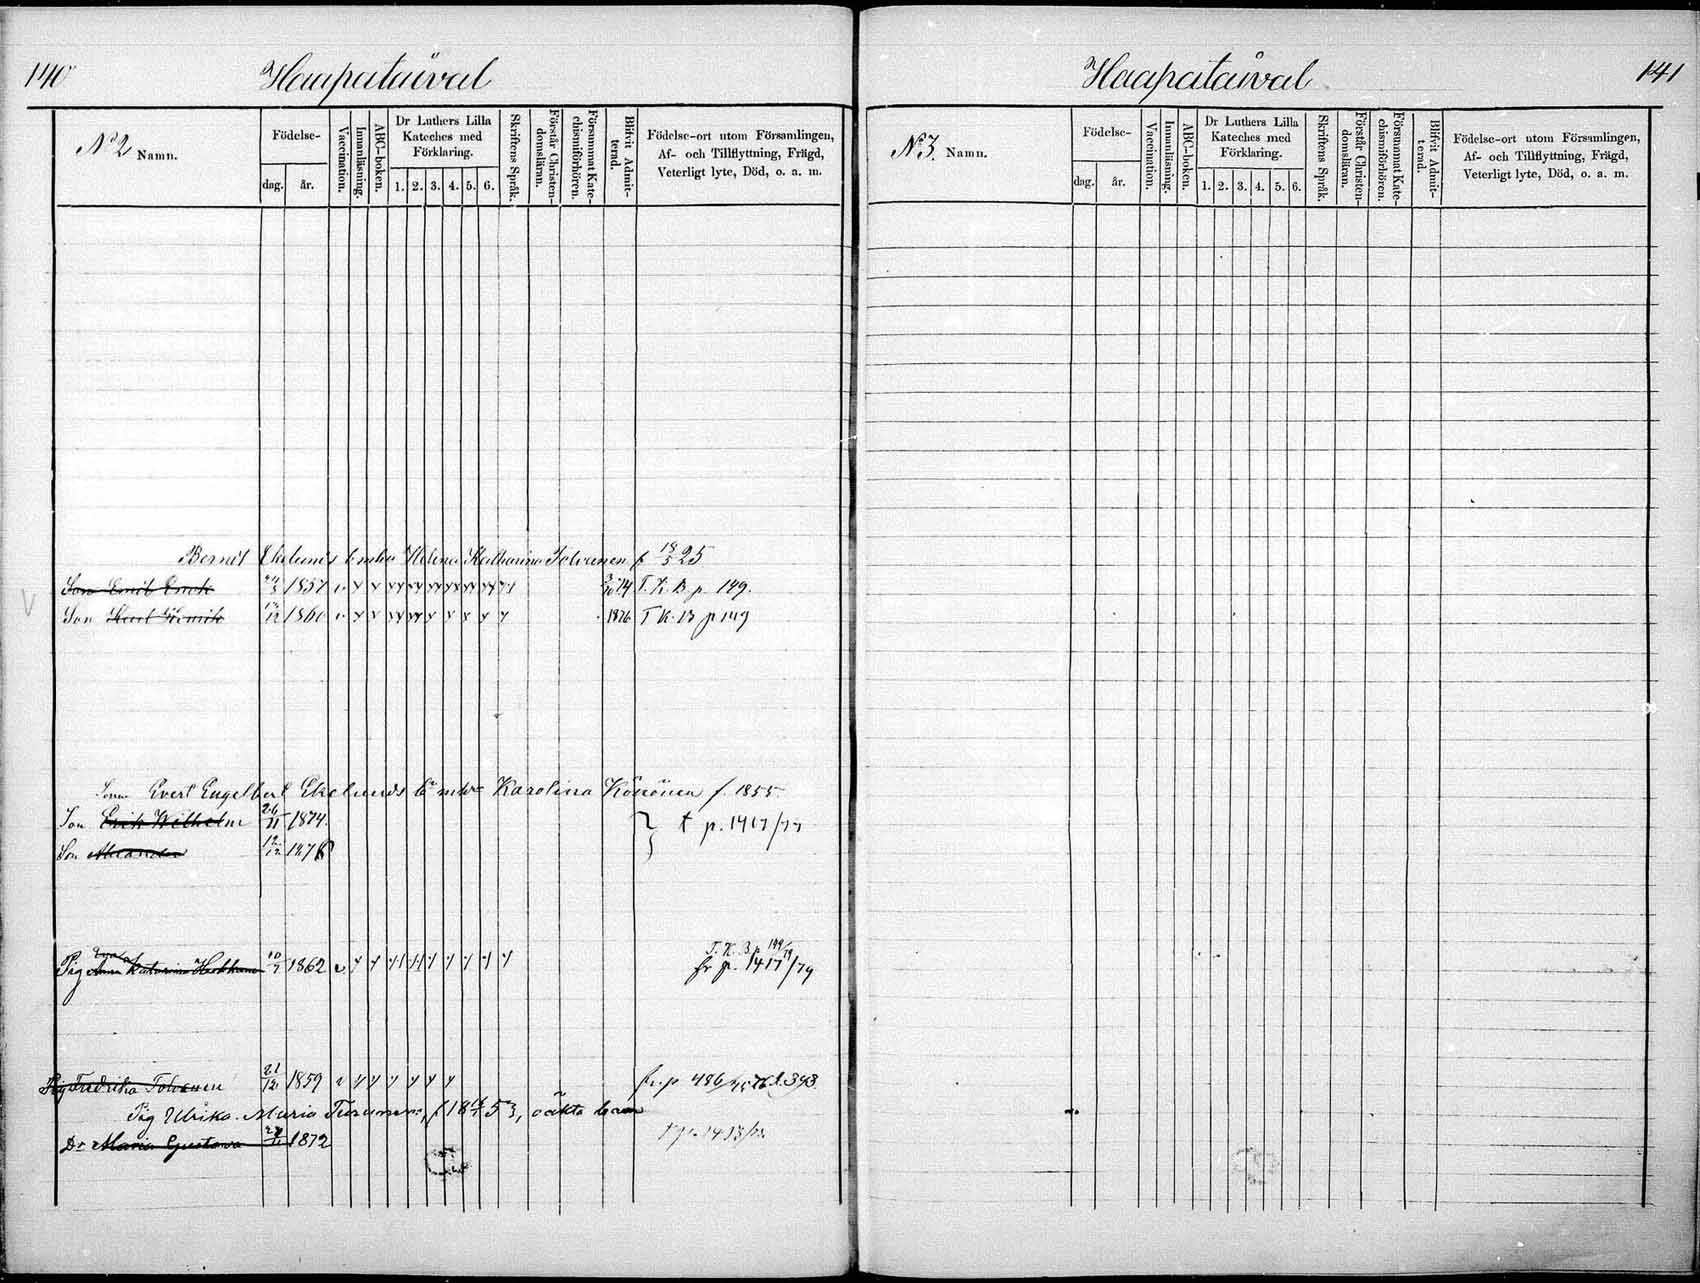 140
Haapataival
No 2 Namn.
Födelse-
dag. år.
Vaccination.
Innanläsning.
ABC-boken.
Dr Luthers Lilla Kateches med Förklaring.
1. 2. 3. 4. 5. 6.
Skriftens Språk.
Förstår Christendomsläran.
Försummat Katechismiförhören.
Blifvit Admitterad.
Födelse-ort utom Församlingen,
Af- och Tillflyttning, Frägd,
Veterligt lyte, Död, o. a. m.
Ekelunds Enka Helena Katharina Tolvanen f 18/5 25
Son Emil Erick 1857 T. K. B. p. 149.
Son Karl Henrik 1860 1876 T K. B p 149
Sonen Evert Engelbert Ekelunds & m hu Karolina Könönen f. 1855.
Son Erik Wilhelm 26/11 1874. p. 1417/77
Son 12/12 1876
Pig Katarina 10/7 1862 T. K. B p 149/79
fr p. 1417/79
Pig Fredrika Tolvanen 21/12 1859 fr. p 486
Pig Ulrika Maria Turunens, oäkta barn
Dr Maria Gustava 1872
141
Haapataival
No 3. Namn.
Födelse-
dag. år.
Vaccination.
Innanläsning.
ABC-boken.
Dr Luthers Lilla Kateches med Förklaring.
1. 2. 3. 4. 5. 6.
Skriftens Språk.
Förstår Christendomsläran.
Försummat Katechismiförhören.
Blifvit Admitterad.
Födelse-ort utom Församlingen,
Af- och Tillflyttning, Frägd,
Veterligt lyte, Död, o. a. m.